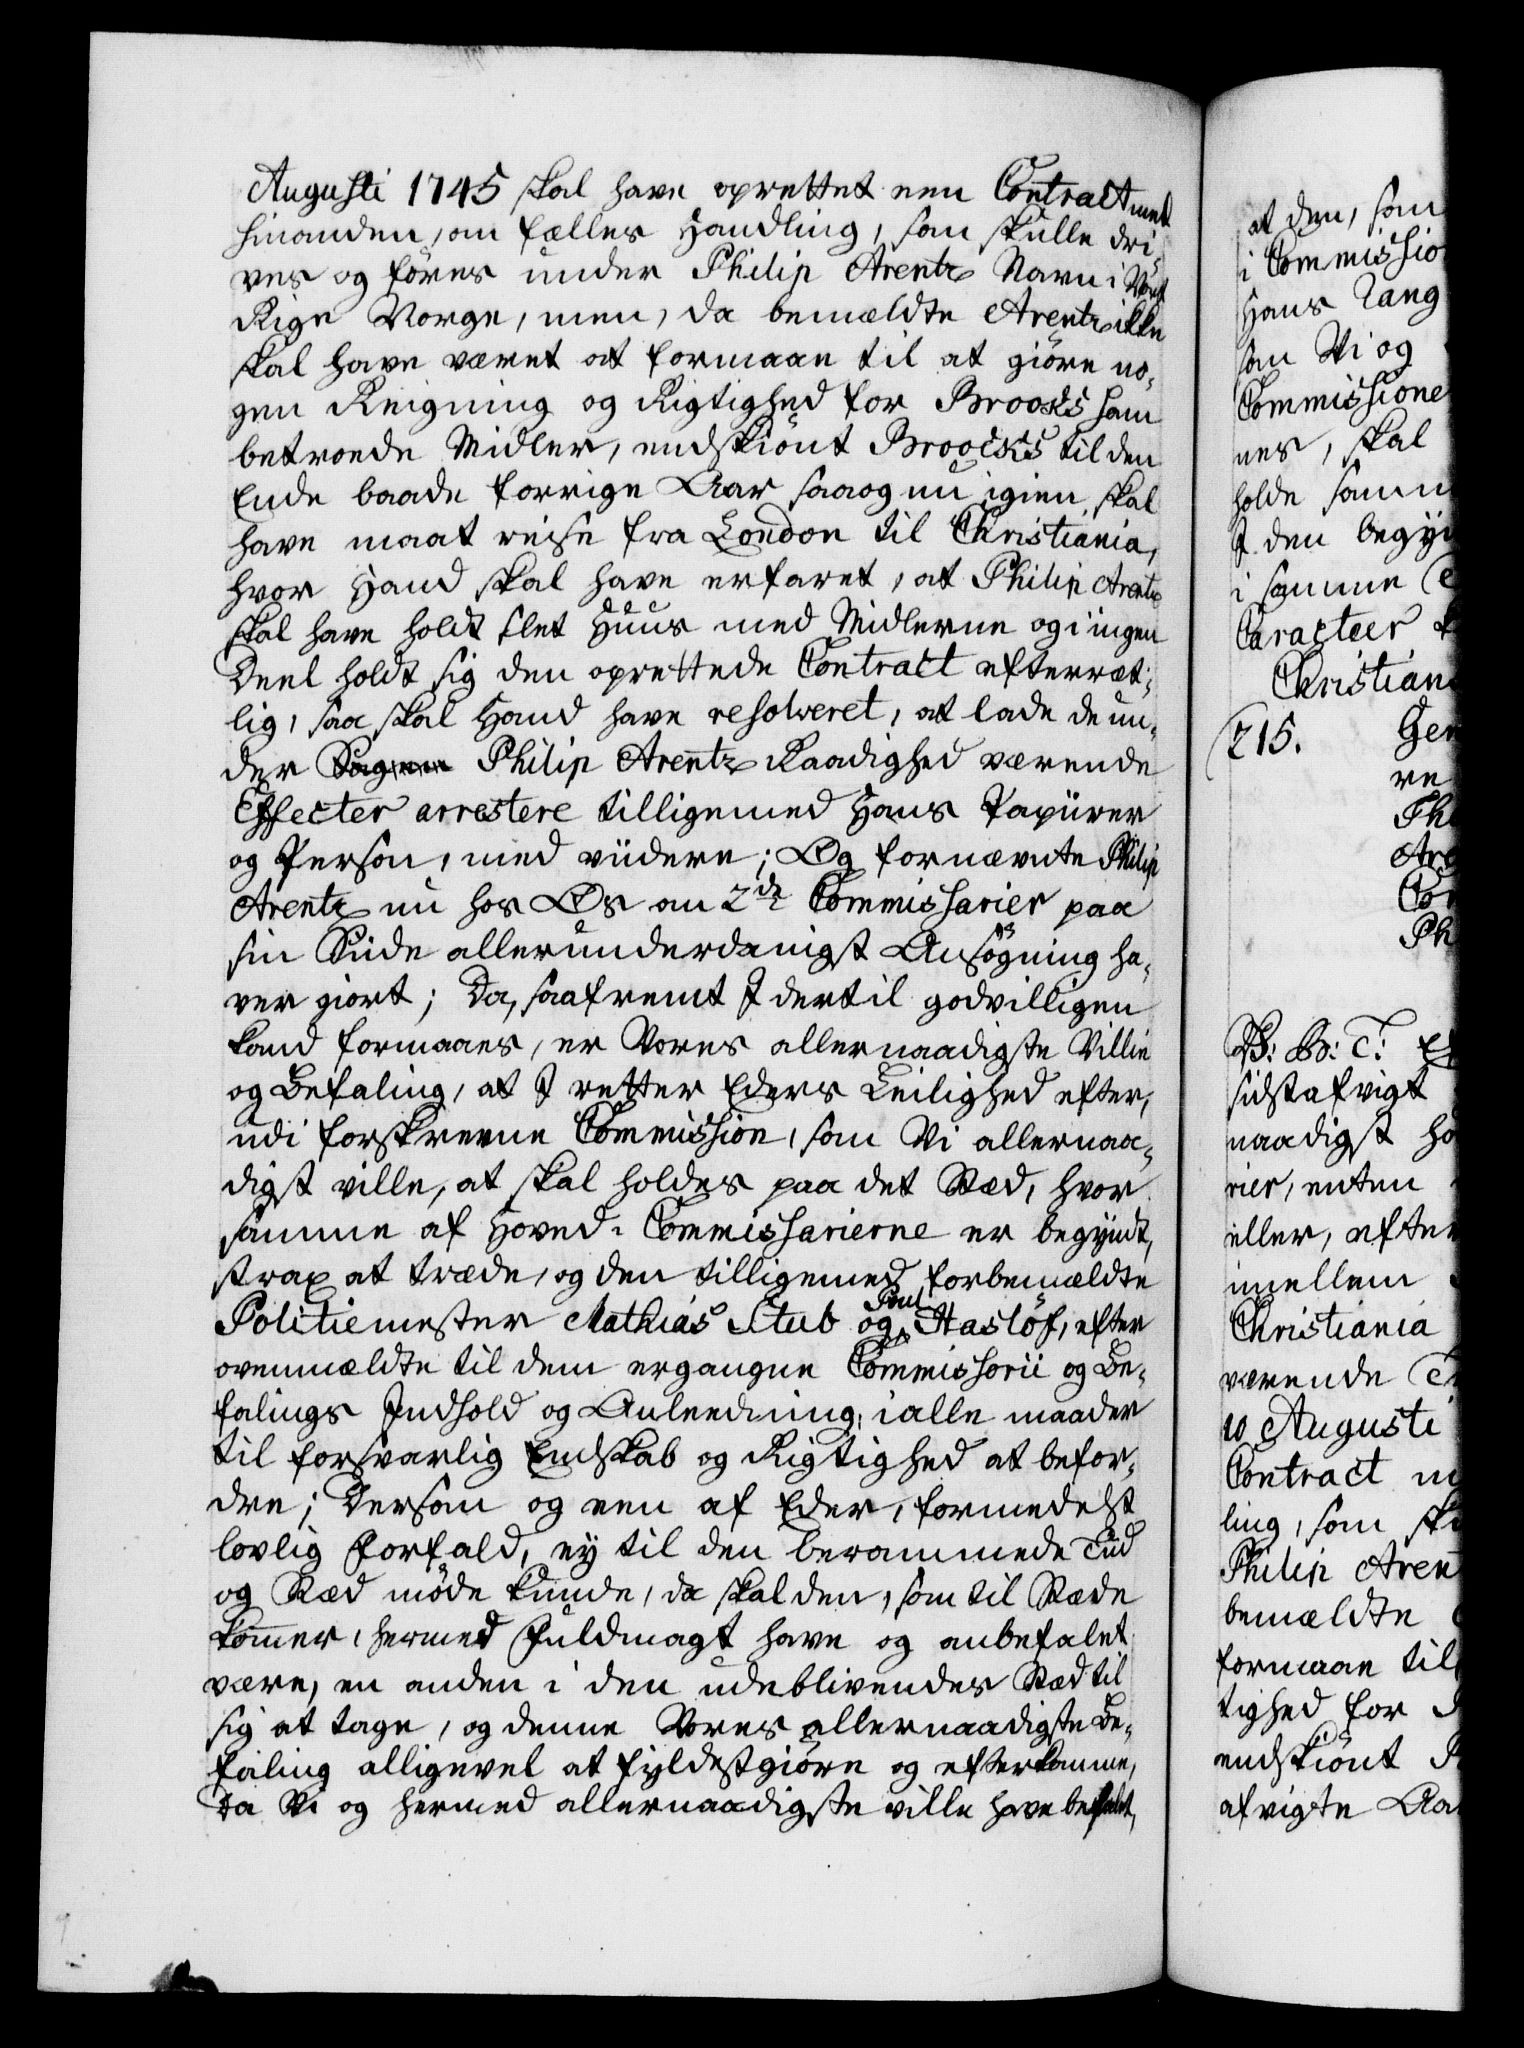 Augusti 1745 skal have oprettet een Contract med
hinanden, om fælles Handling, som skulle dri¬
ves og föres under Philip Arentz Navn i Vort
Rige Norge, men, da bemældte Arentz ikke
skal have været at formaae til at giöre no¬
gen Reigning og Rigtighed for Broocks ham
betroede Midler, endskiönt Broocks til den
Ende baade forrige Aar saa og nu igien skal
have maat reise fra London til Christiania,
hvor Hand skal have erfaret, at Philip Arentz
skal have holdt slet Huus med Midlerne og i ingen
Deel holdt sig den oprettede Contract efterret¬
lig, saa skal Hand have resolveret, at lade de un¬
der Philip Arentz Raadighed værende
Effecter arrestere tilligemed Hans Papiirer
og Person, med viidere; Og fornævnte Philip
Arentz nu hos Os om 2de Commissarier paa
sin Siide allerunderdanigst Ansögning ha¬
ver giort; Da, saafremt I dertil godvilligen
kand formaaes, er Vores allernaadigste Villie
og Befaling, at I retter Eders Leilighed efter,
udi forskrevne Commission, som Vi allernaa¬
digst ville, at skal holdes paa det Stæd, hvor
samme af Hoved-Commissarierne er begyndt,
strax at træde, og den tilligemed forbemældte
Politiemester Mathias Stub og Poul Haslöf, efter
ovenmældte til dem ergangne Commissorii og Be¬
falings Indhold og Anleedning, i alle maader
til forsvarlig Endskab og Rigtighed at befor¬
dre; Dersom og een af Eder, formedelst
lovlig Forfald, ey til den berammede Tiid
og Stæd möde kunde, da skal den, som til Stæde
kommer, hermed Fuldmagt have og anbefalet
være, en anden i den udeblivendes Stæd til
sig at tage, og denne Vores allernaadigste Be¬
faling alligevel at fyldestgiöre og efterkomme,
Da Vi og hermed allernaadigste ville have befalet,
at den, som
i Commissio
Hans Rang
som Vi og
Commissione
nes, skal
holde samm
I den begyn
i samme
Caracteer
Christian
215.
Gen
re
Phi
Are
Con
Ph
sidstafvigt
naadigst ha
rier, enten
eller, efter
imellem
Christiania
værende
10 Augusti
Contract m
ling, som sku
Philip Arent
bemældte
formaae til
tighed for
endskiönt
afvigte Aar